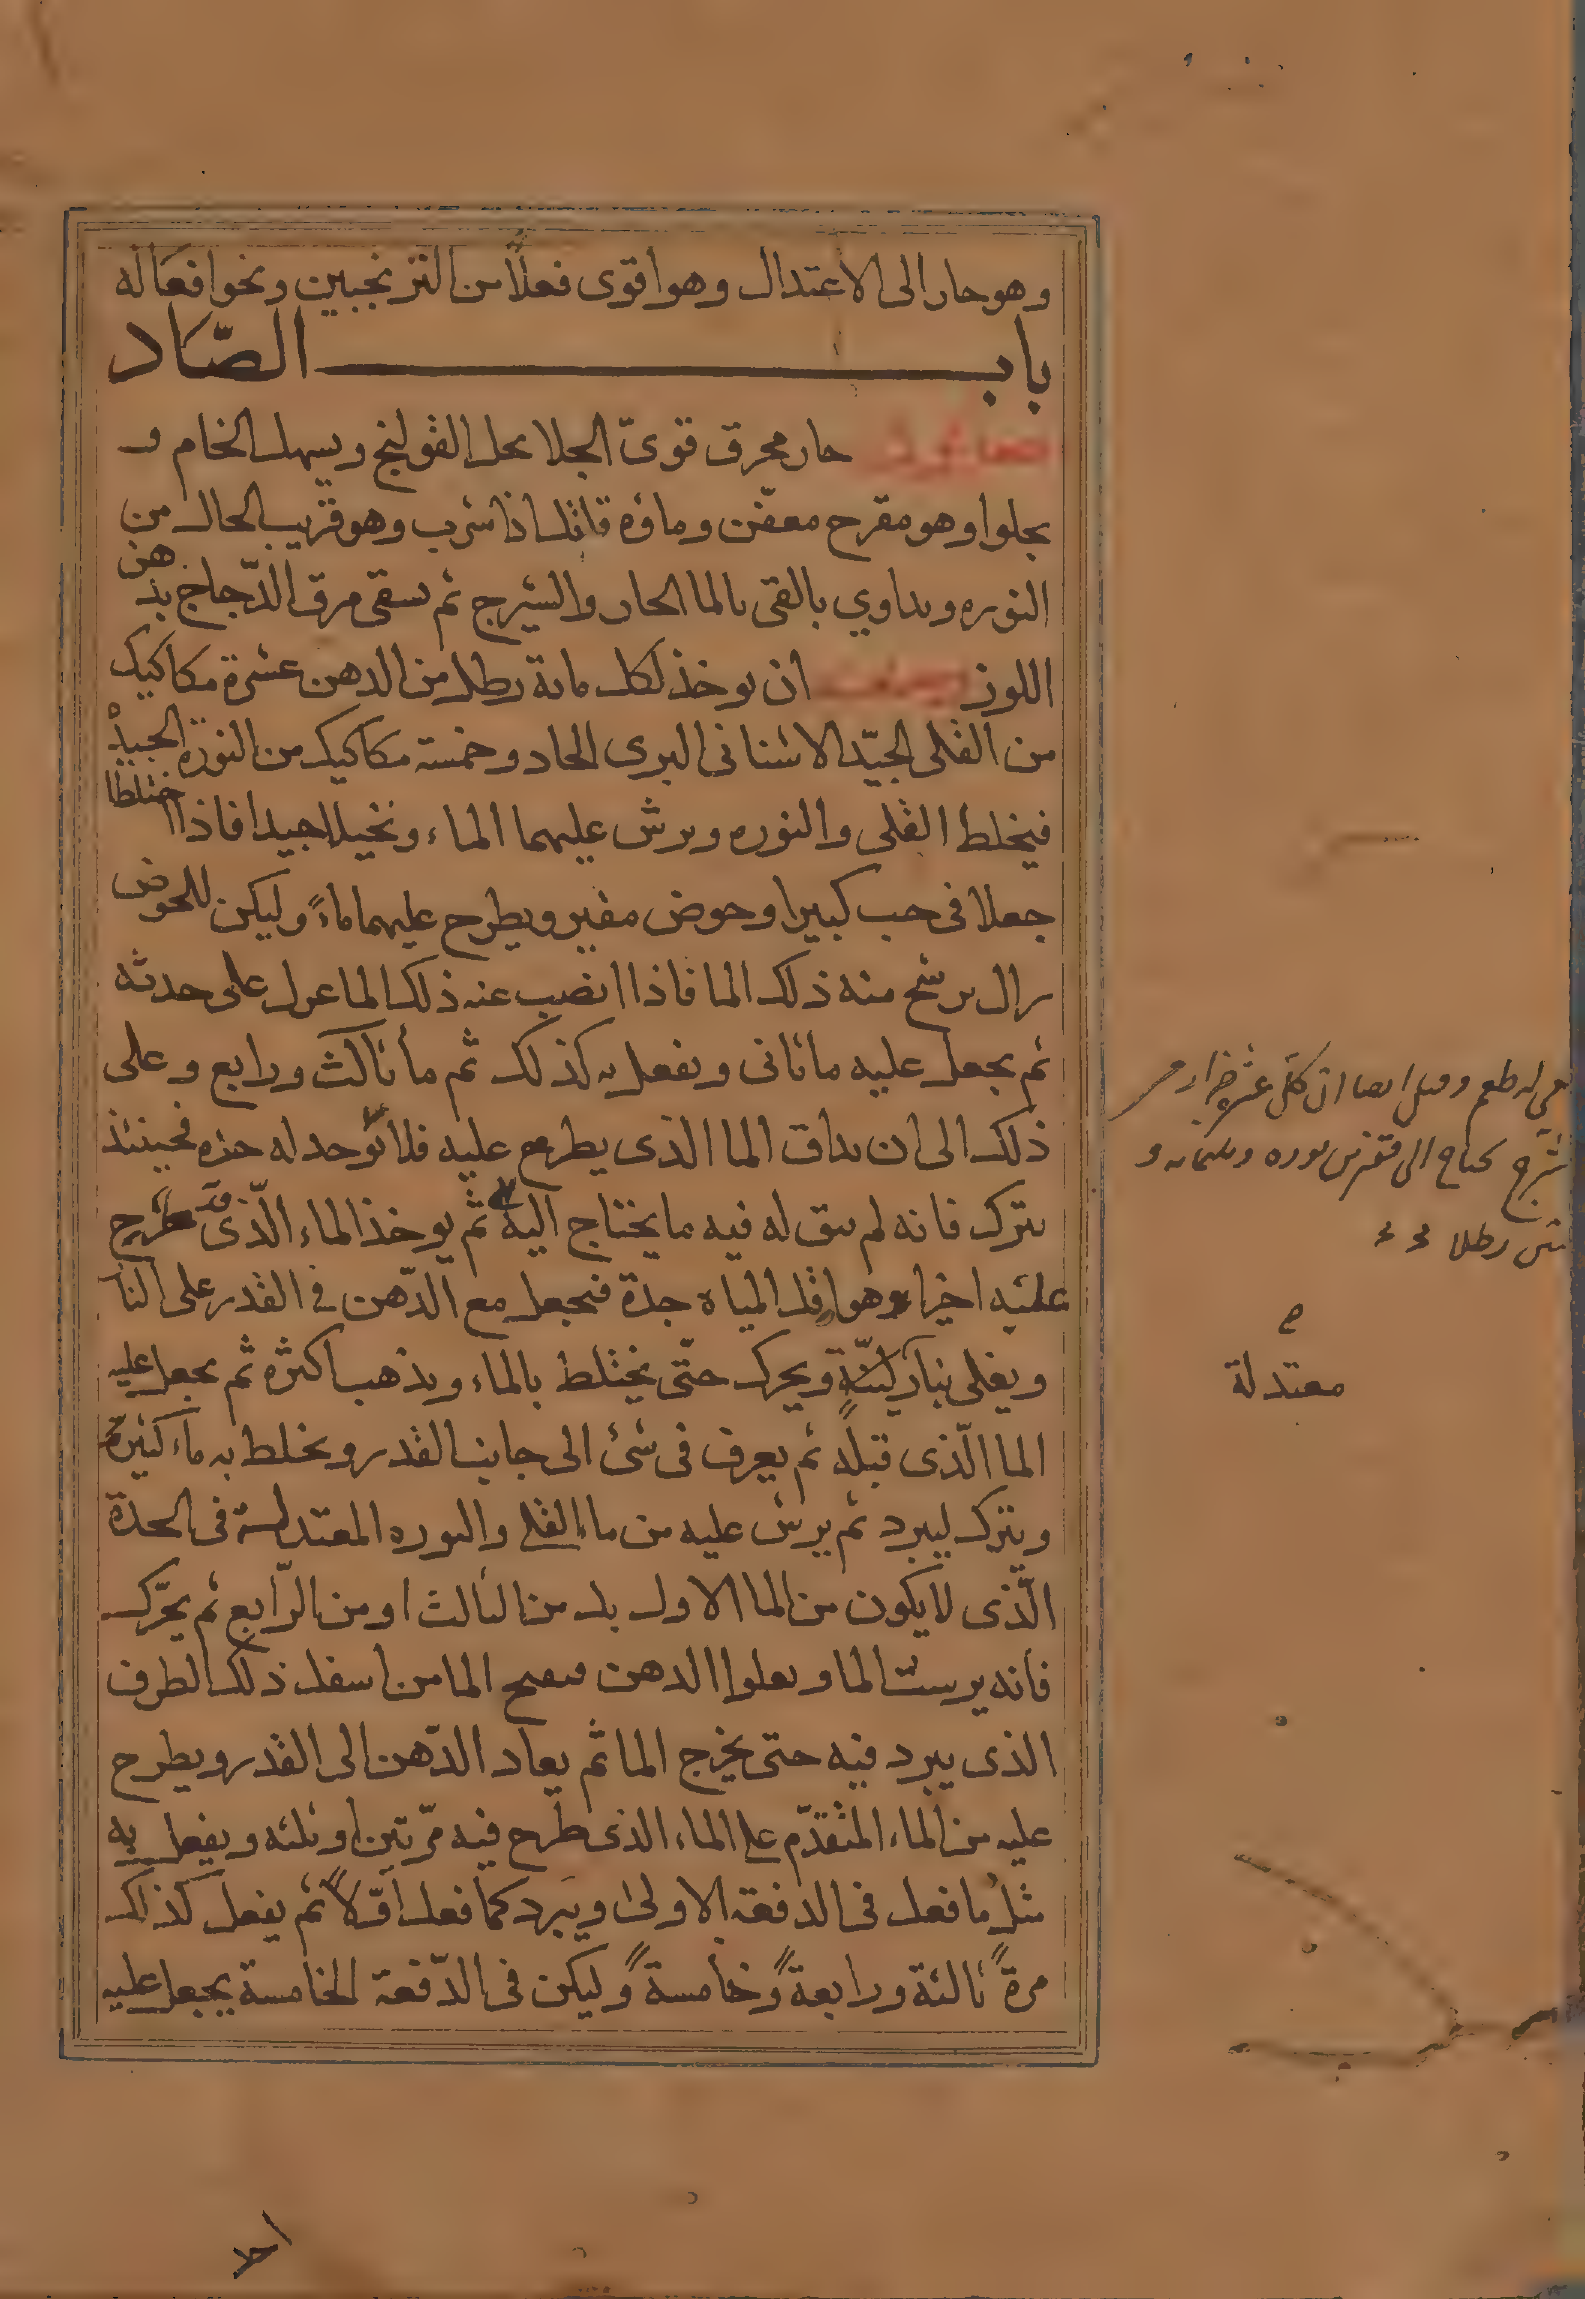 وهو حار الى الاعتدال وهو اقوى فعلاً من الترنجبين ونحو افعاله
باب الصّاد
صابون حار محرق قوىّ الجلا يحل القولنج ويسهل الخام و
يجلوا وهو مقرح معفّن وماؤه قاتل اذا شرب وهو قريب الحال من
النوره ويداوي بالقى بالما الحار والشيرج ثم يسقى مرق الدّجاج بدهن
اللوز ان يوخذ لكل ماىة رطل من الدهن عشرة مكاكيك
من القلى الجيّد الاشنانى البرى الحاد وخمسة مكاكيك من النورة الجيدة
فيخلط القلى والنوره ويرش عليهما الماء ونخيلا جيدا فاذا اختلطا
جعلا فى حب كبير او حوض مقير ويطرح عليهما ماءً وليكن للحوض
يرشح منه ذلك الما فاذا انصب عنه ذلك الما عزل على حدته
ثم يجعل عليه ما ثانى ويفعل به كذلك ثم ما ثالث ورابع وعلى
ذلك الى ان يذاق الما الذى يطرح عليه فلا توجد له حده فحينئذ
يترك فانه لم يبق له فيه ما يحتاج اليه ثم يوخذ الماء الّذى قد طرح
عليه اخيرا وهو اقل المياه حدة فيجعل مع الدّهن فى القدر على النار
ويغلى بنار لينّة ويحرك حتّى يختلط بالماء ويذهب اكثره ثم يجعل عليه
الما الّذى قبله ثم يعرف فى شئ الى جانب القدر ويخلط به ماء كثيرة
ويترك ليبرد ثم يرش عليه من ماء القلى والنوره المعتدلة فى الحدة
الّذى لا يكون من الما الاول بل من الثالث او من الرّابع ثم يحّرك
فانه يرسب الما ويعلوا الدهن فيفتح الما من اسفل ذلك الطرف
الذى يبرد فيه حتى يخرج الما ثم يعاد الدّهن الى القدر ويطرح
عليه من الماء المتقدّم على الماء الذى طرح فيه مرّتين او ثلثه ويفعل به
مثل ما فعل فى الدفعة الاولى ويبرد كما فعل اوّلاً ثم يفعل كذلك
مرةً ثالثة ورابعةً وخامسةً وليكن فى الدّفعة الخامسة يجعل عليه
له طعم وقيل ايضا ان كل عشرة
شيرج يحتاج الى قفيز نوره
رطلا
معتدلة